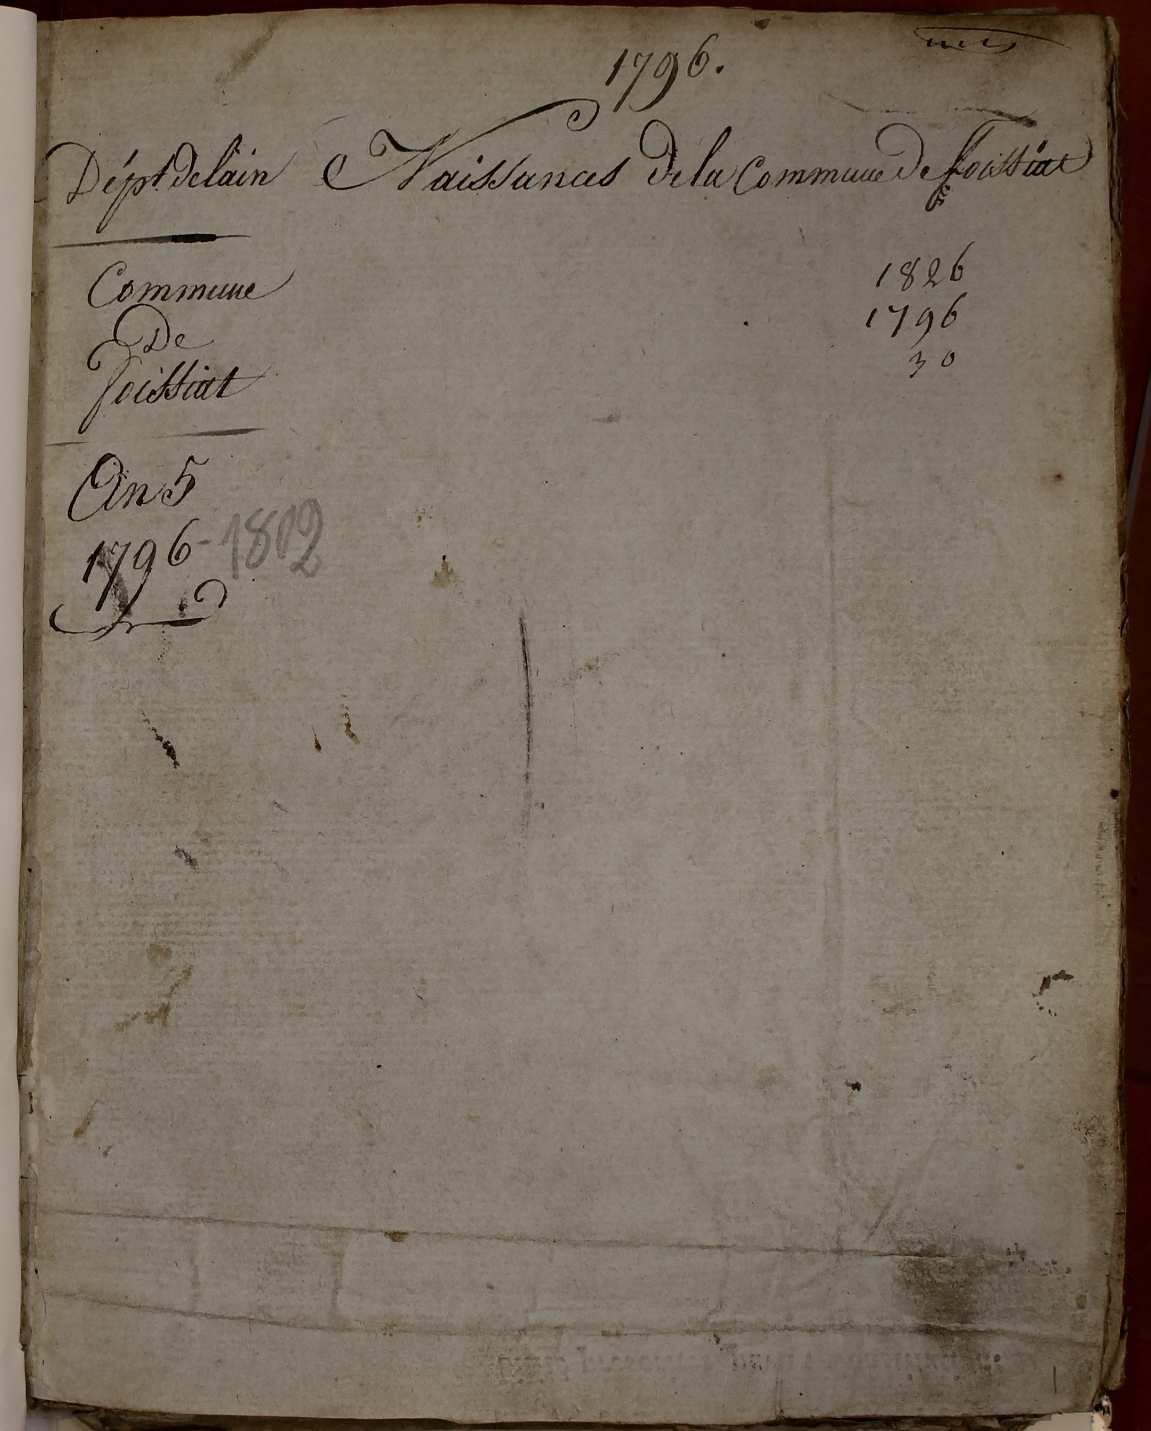 1796.
Dépt de lain Naissances de la Commune de foissiat
Commune
De
foissiat
An 5
1796 - 1802
1826
1796
30